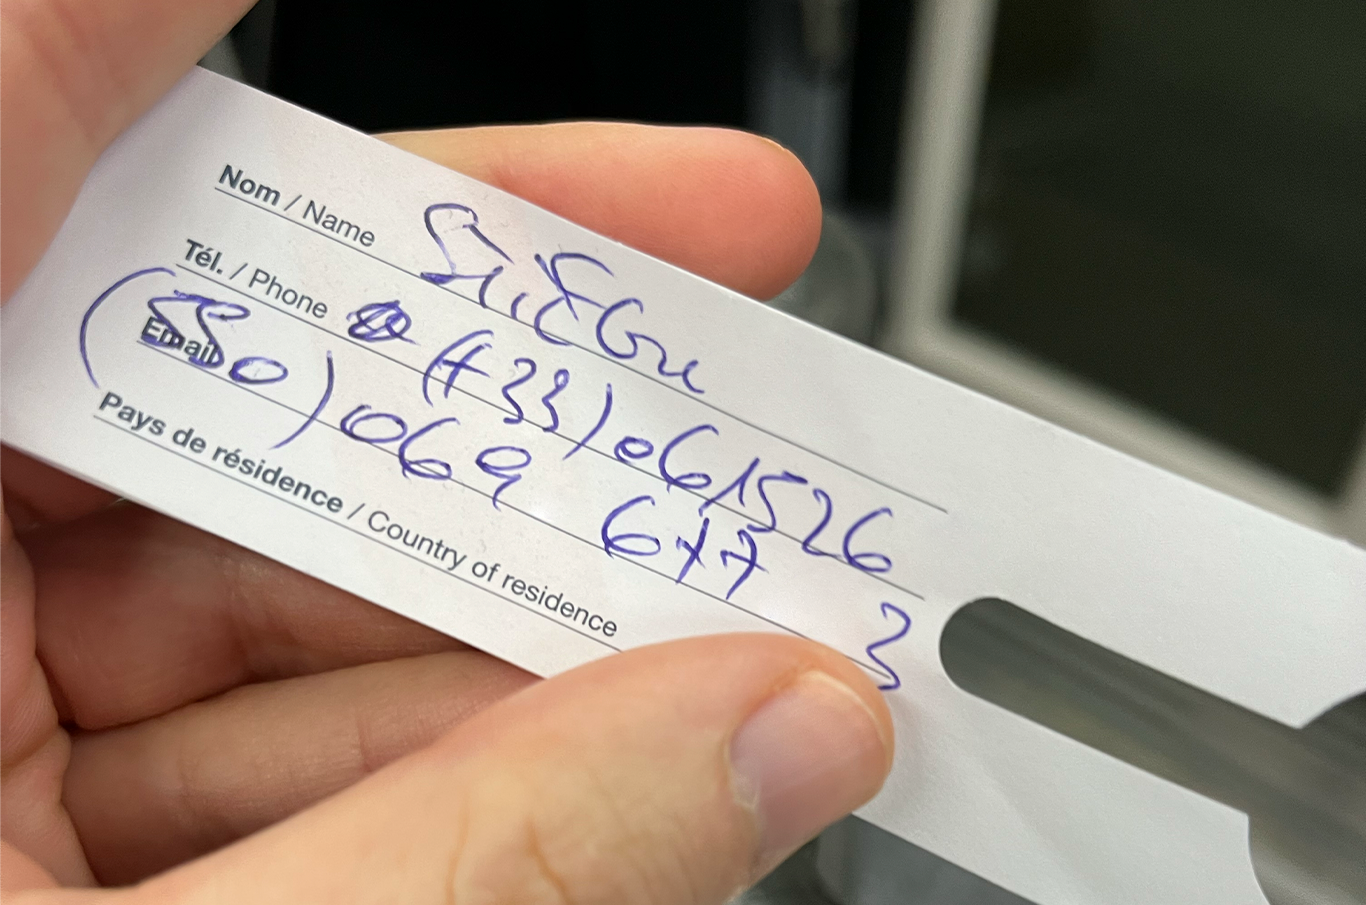 Nom / Name
Tél. / Phone (+33) 061526
Email (550) 069 677 3
Pays de résidence / Country of residence